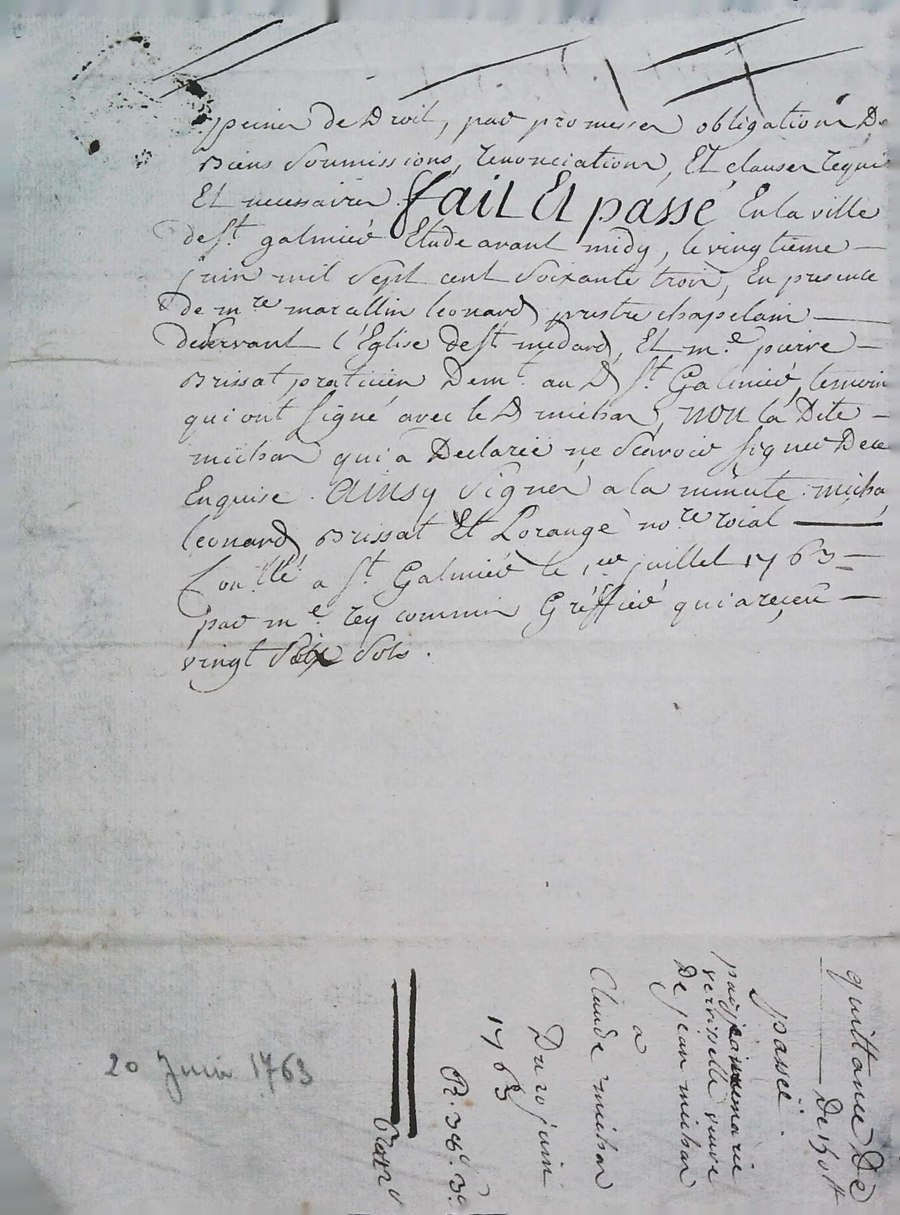 peines de Droit, par promesses obligations De
Biens soumissions, renonciations, Et clauses requis
Et necessaires. fait Et passé En la ville
de st galmier Etude avant midy, le vingtième —
juin mil sept cent soixante trois, En presence
de m.re marcellin leonard prestre chapelain —
desservant l'Eglise de st medard, Et m.e pierre —
Brissat praticien Dem.t au D st Galmier, temoin
qui ont signé avec le D michon, non la Dite —
michon qui a Declarée ne scavoir signer De ce
Enquise. Ainsy signer a la minute. micho
leonard, Brissat Et Lorange no.re roial —
Con.llé a st Galmier le 1.er juillet 1763 =
par m.e rey commis Greffier qui a reçeu —
vingt six sols.
quittance De
— De 150 #
passéé.
par marie
verrisselle veuve
De jean michon
a
Claude michon
Du 20 juin
1763
20 Juin 1763